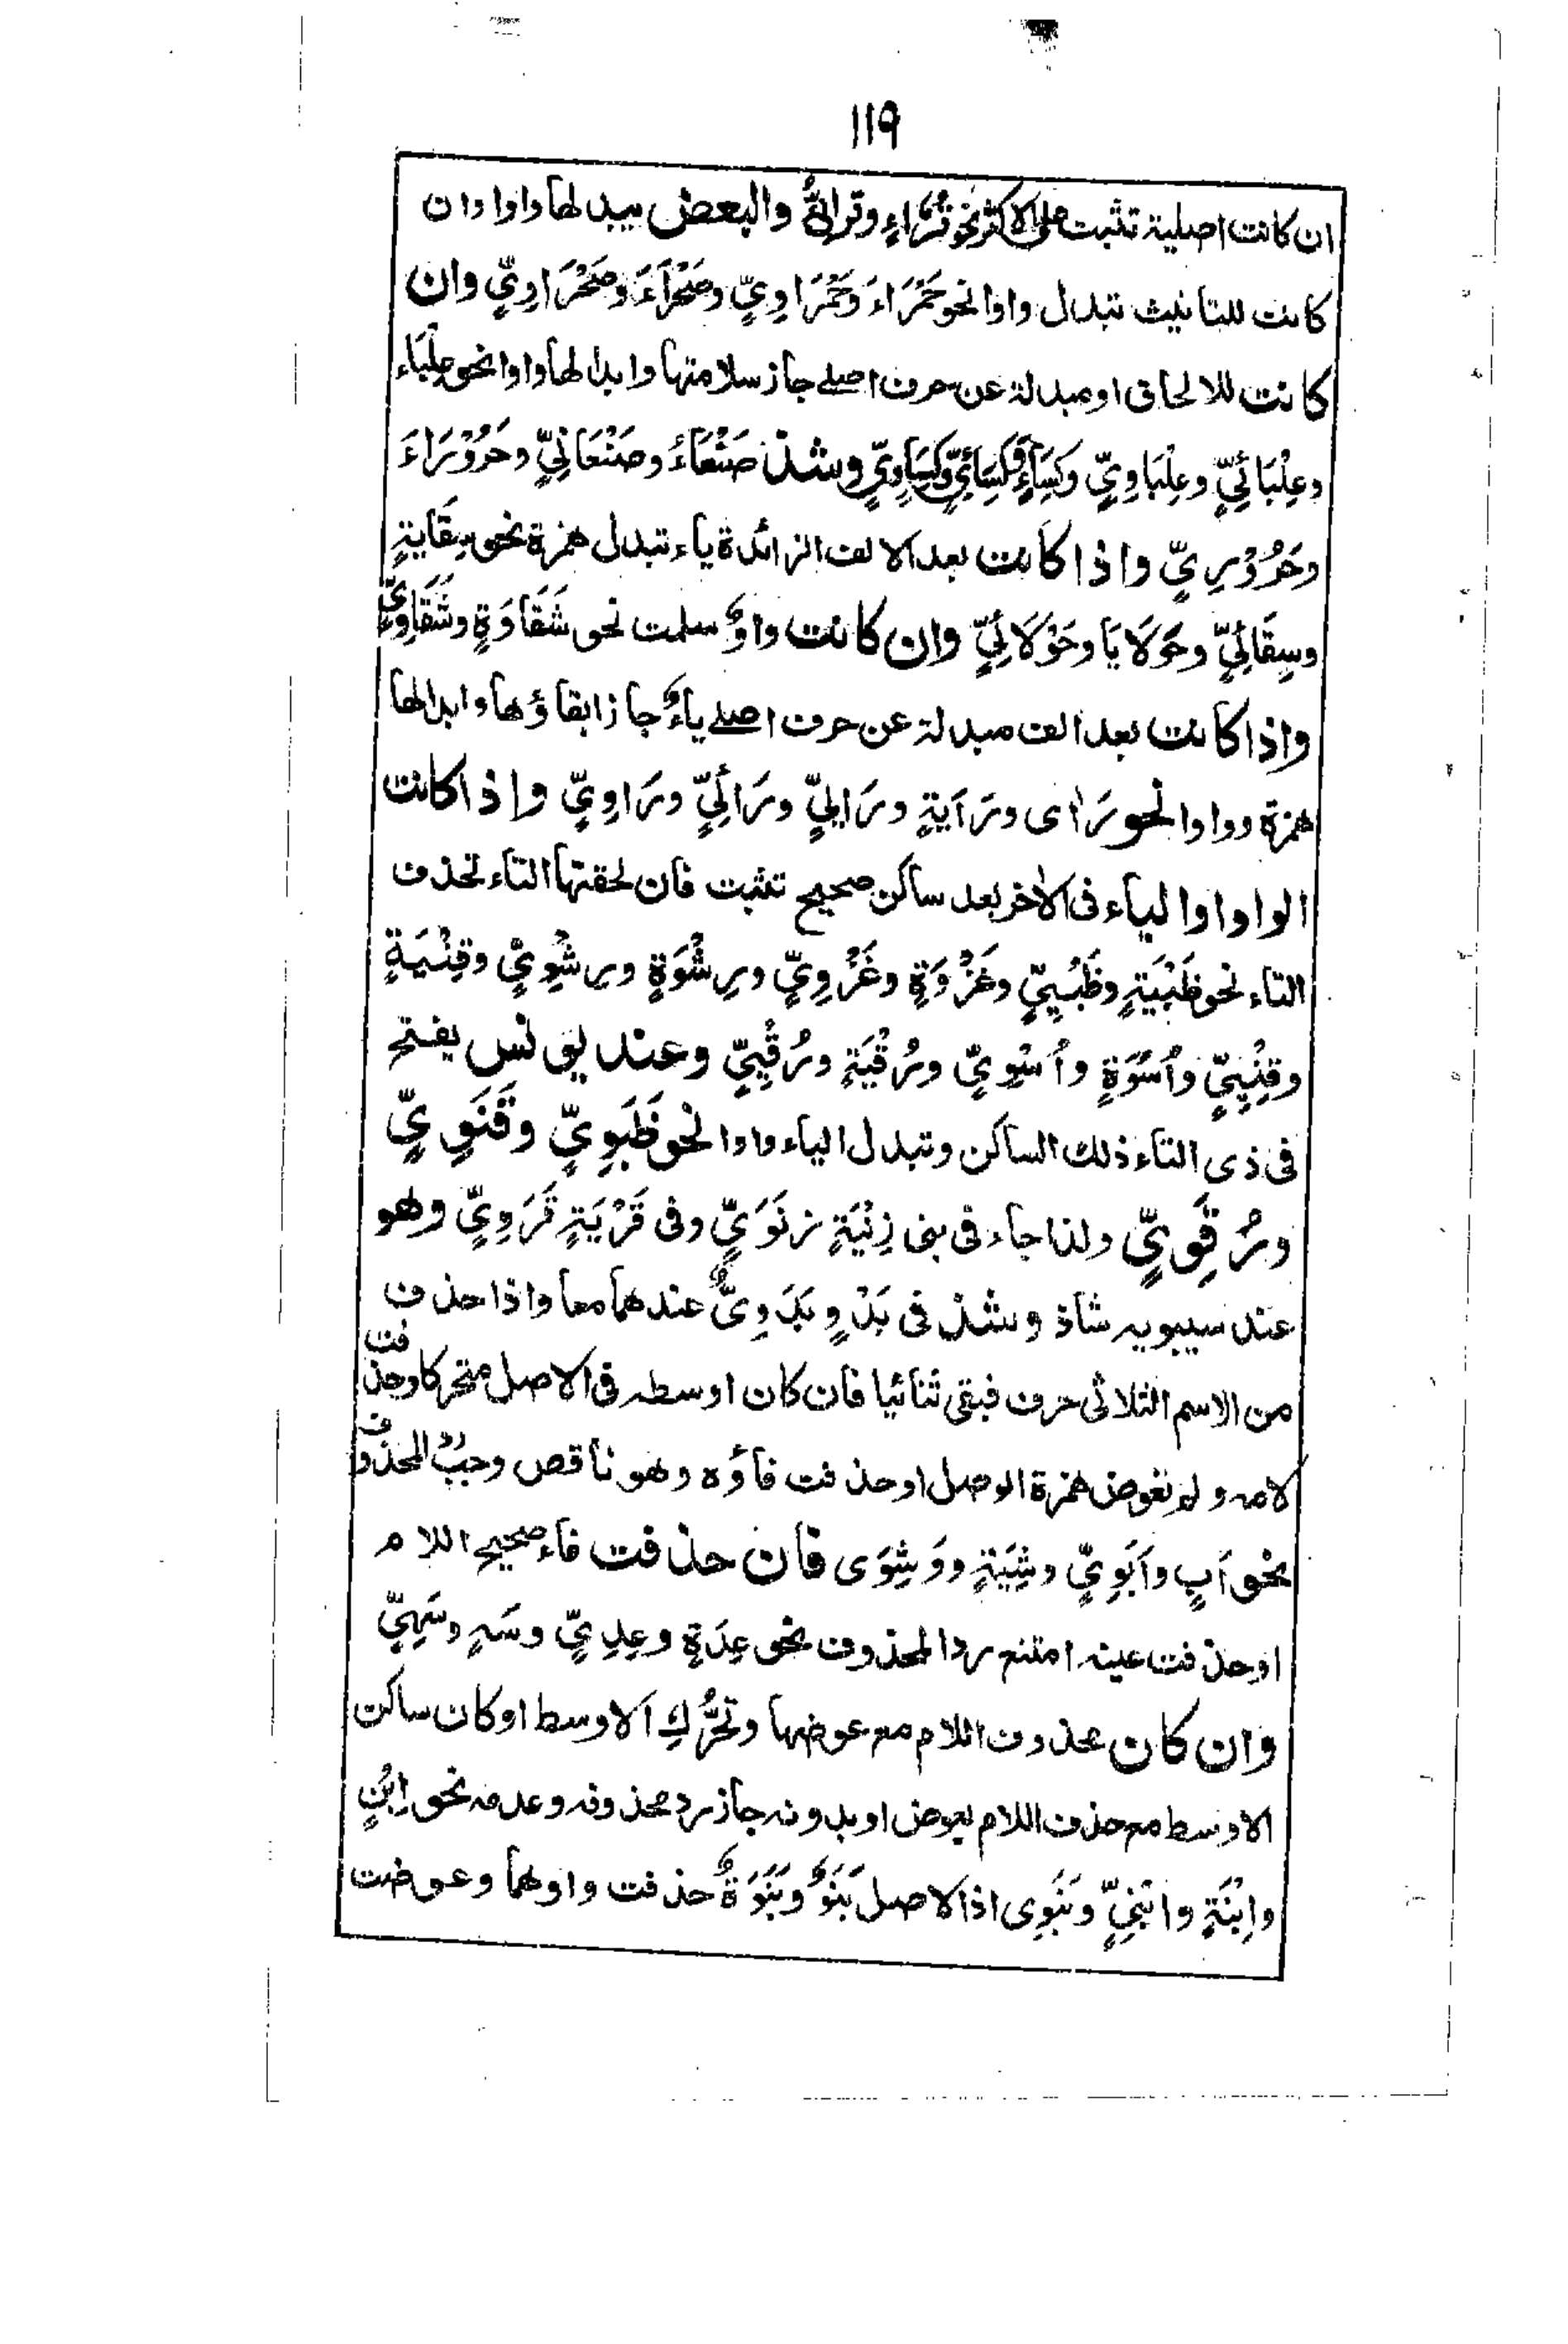 ١١٩
ان كانت اصلية تثبت على الاكثر نحو قُرَّاءٍ وقرائیٌّ والبعض يبدلها واوا وان
كانت للتانيث تبدل واوا نحو حَمْرَاءَ وَحَمْرَاوِيٍّ وصَحْرَآءَ وصَحْرَاوِيٍّ وان
كانت للالحاق او مبدلة عن حرف اصلے جاز سلامتها وابدالها واوا نحو عِلْبَاء
وعِلْبَائِيٍّ وعِلْبَاوِيٍّ وَكِسَآءٍ وكِسَائِيٍّ وكِسَاوِيٍّ وشذ صَنْعَاءُ وصَنْعَانِيٍّ وحَرُوْرَاءَ
وحَرُوْرِيٍّ واذا كانت بعد الالف الزائدة ياء تبدل همزة نحو سِقَايةٍ
وسِقَائِيٍّ وحَوْلَايَا وحَوْلَائِيٍّ وان كانت واوٌ سلمت نحو شَقَاوَةٍ وشَقَاوِيٍّ
واذا كانت بعد الف مبدلة عن حرف اصلے ياءٌ جاز ابقاؤها وابدالها
همزة وواوا نحو رَاٰی ورَاٰيَةٍ ورَايِيٍّ ورَائِيٍّ ورَاوِيٍّ واذا كانت
الواو او الياء فى الاٰخر بعد ساكن صحيح تثبت فان لحقتها التاء تحذف
التاء نحو ظَبْيَةٍ وظَبْيِيٍّ وغَزْوَةٍ وغَزْوِيٍّ ورِشْوَةٍ ورِشْوِيٍّ وقِنْيَةٍ
وقِنْيِيٍّ واُسْوَةٍ واُسْوِيٍّ ورُقْيَةٍ ورُقْيِيٍّ وعند يونس يفتح
فى ذى التاء ذلك الساكن وتبدل الياء واوا نحو ظَبَوِيٍّ وقَنَوِيٍّ
ورُقَوِيٍّ ولذا جاء فى بنى زِنْيَةٍ زنَوَيٍّ وفى قَرْيَةٍ قَرَوِيٍّ وهو
عند سيبويہ شاذ وشذ فى بَدْوٍ بَدَوِیٌّ عندهما معا واذا حذف
من الاسم الثلاثى حرف فبقى ثنائيا فان كان اوسطہ فى الاصل متحركا وحذفت
لامہ ولم تعوض همزة الوصل او حذفت فاؤہ وهو ناقص وجب ردّ المحذوف
نحو اَبٍ واَبَوِيٍّ وشِيَةٍ ووَشِوَى فان حذفت فاء صحيح اللام
او حذفت عينہ امتنع رد المحذوف نحو عِدَةٍ وعِدِيٍّ وسَہٍ وسَهِيٍّ
وان كان محذوف اللام مع عوضها وتحرُّكِ الاوسط او كان ساكن
الاوسط مع حذف اللام بعوض او بدونہ جاز رد محذوفہ وعدمہ نحو اِبْنٍ
واِبْنَةٍ وابْنِيٍّ وَبَنَوِى اذ الاصل بَنَوٌ وبَنَوَةٌ حذفت واوهما وعوضت